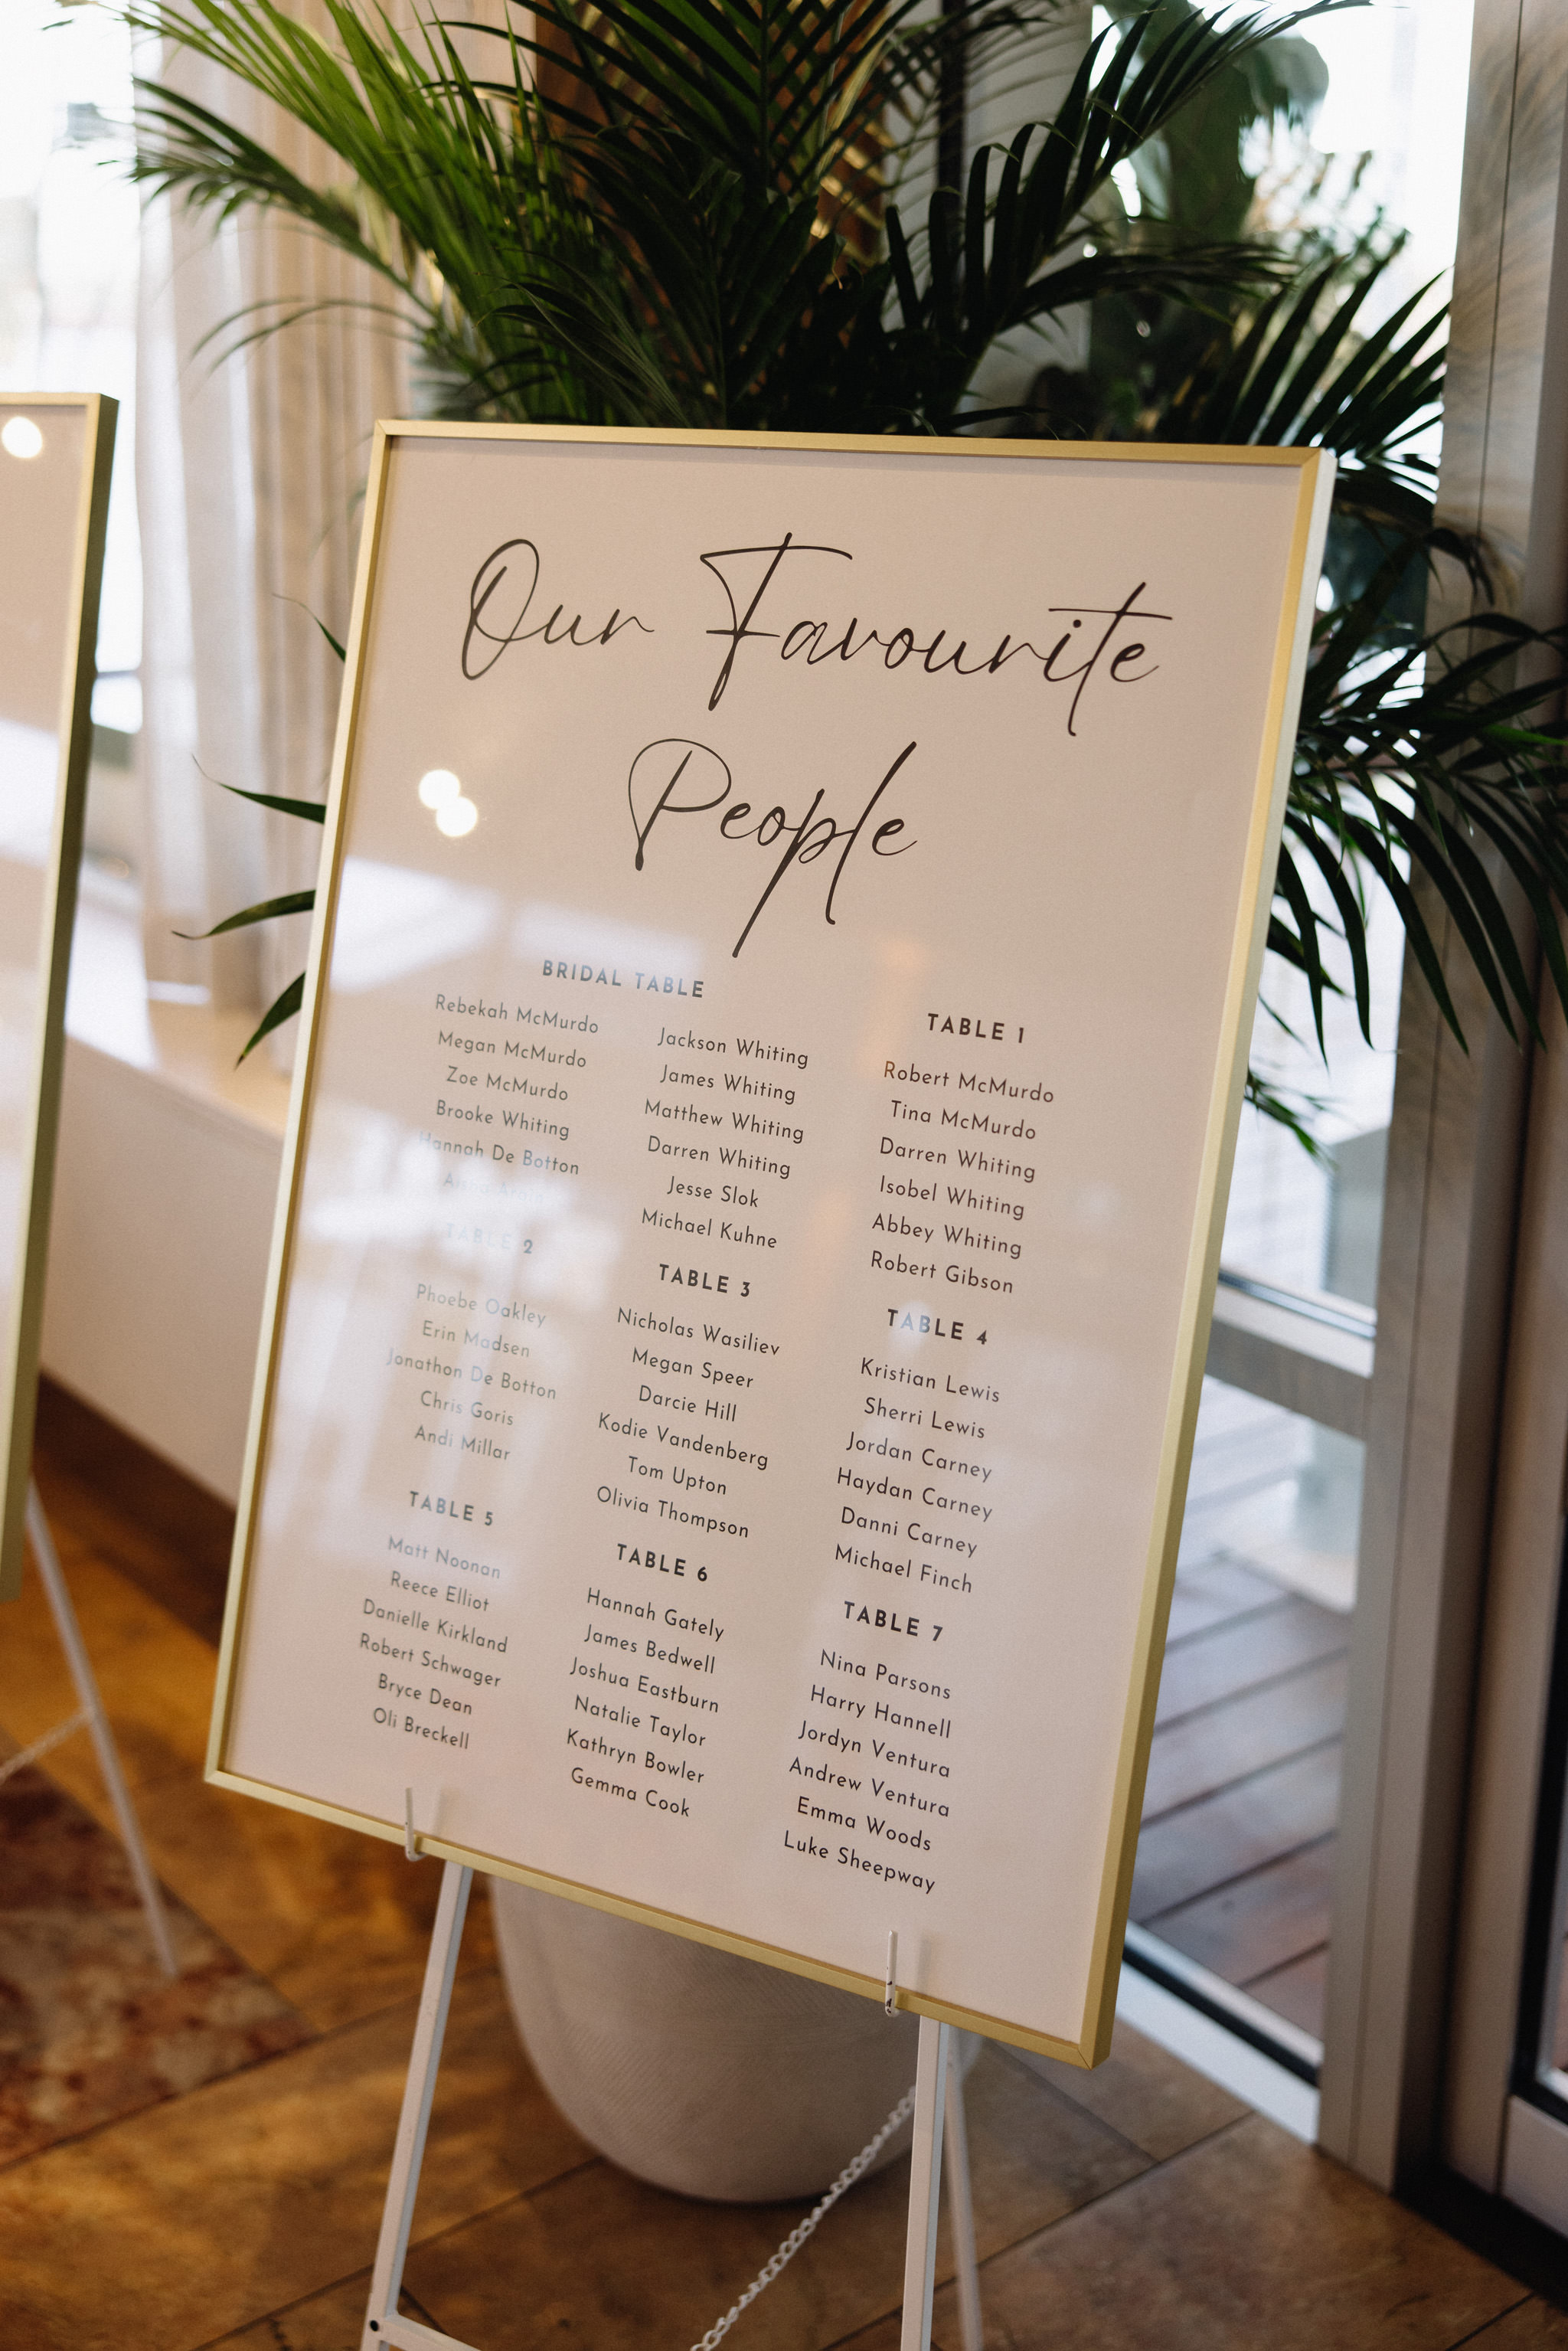 Our Favourite
People
BRIDAL TABLE
Rebekah McMurdo
Megan McMurdo
Zoe McMurdo
Brooke Whiting
Hannah De Botton
Jackson Whiting
James Whiting
Matthew Whiting
Darren Whiting
Jesse Slok
Michael Kuhne
TABLE 1
Robert McMurdo
Tina McMurdo
Darren Whiting
Isobel Whiting
Abbey Whiting
Robert Gibson
TABLE 2
Phoebe Oakley
Erin Madsen
Jonathon De Botton
Chris Goris
Andi Millar
TABLE 3
Nicholas Wasiliev
Megan Speer
Darcie Hill
Kodie Vandenberg
Tom Upton
Olivia Thompson
TABLE 4
Kristian Lewis
Sherri Lewis
Jordan Carney
Haydan Carney
Danni Carney
Michael Finch
TABLE 5
Matt Noonan
Reece Elliot
Danielle Kirkland
Robert Schwager
Bryce Dean
Oli Breckell
TABLE 6
Hannah Gately
James Bedwell
Joshua Eastburn
Natalie Taylor
Kathryn Bowler
Gemma Cook
TABLE 7
Nina Parsons
Harry Hannell
Jordyn Ventura
Andrew Ventura
Emma Woods
Luke Sheepway